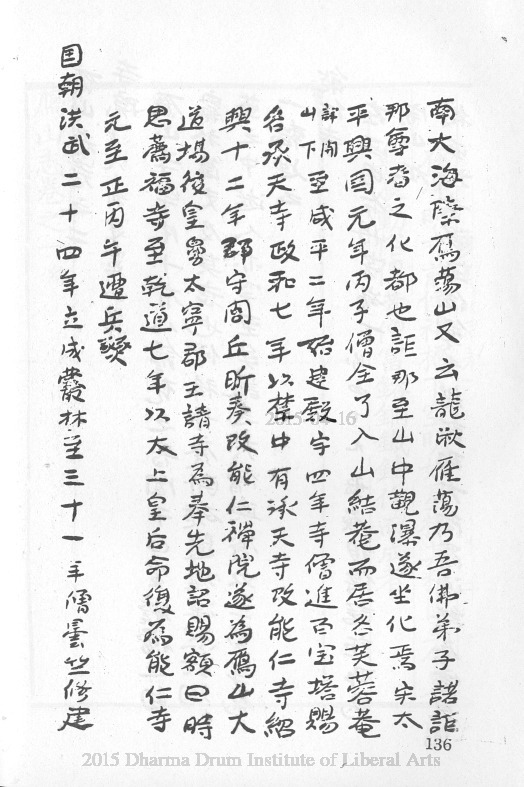 南大海際鴈蕩山又云龍湫雁蕩乃吾佛弟子諸詎
那尊者之化都也詎那至山中觀瀑遂坐化焉宋太
平興国元年丙子僧全了入山結菴而居名芙蓉菴
山下至咸平二年始建殿宇四年寺僧進百宝塔賜
名承天寺政和七年以禁中有承天寺改能仁寺紹
興十二年郡守閭丘昕奏改能仁禪院遂為鴈山大
道塲後皇舅太寧郡王請寺為奉先地詔賜額曰時
思薦福寺至乹道七年以太上皇后命復為能仁寺
元至正丙午遭兵燹
囯朝洪武二十四年立成叢林至三十一年僧曇竺修建
136
2015-04-16
2015 Dharma Drum Institute of Liberal Arts